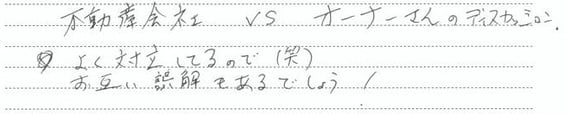 不動産会社 VS オーナーさんのディスカッション.
よく対立してるので(笑)
お互い誤解もあるでしょう!